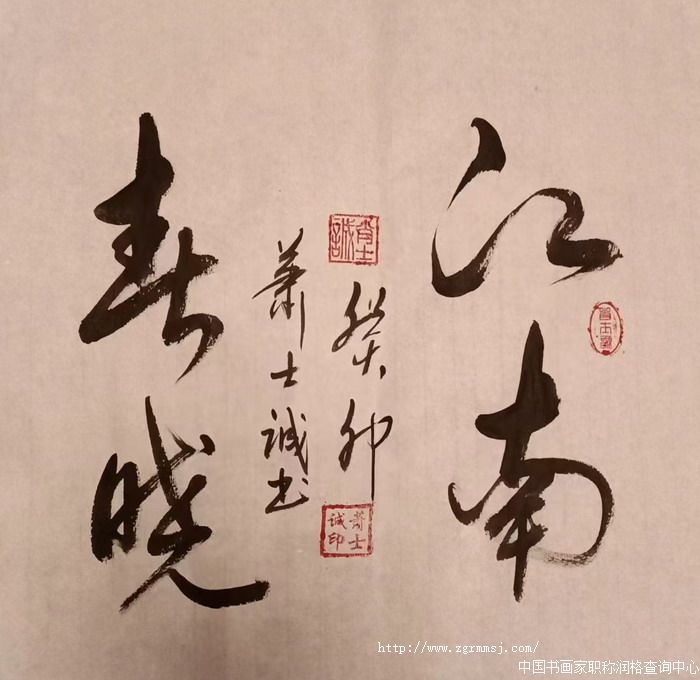 江南
春晓
癸卯
萧士诚书
肖士誠
萧士诚印
http://www.zgrmmsj.com/
中国书画家职称润格查询中心